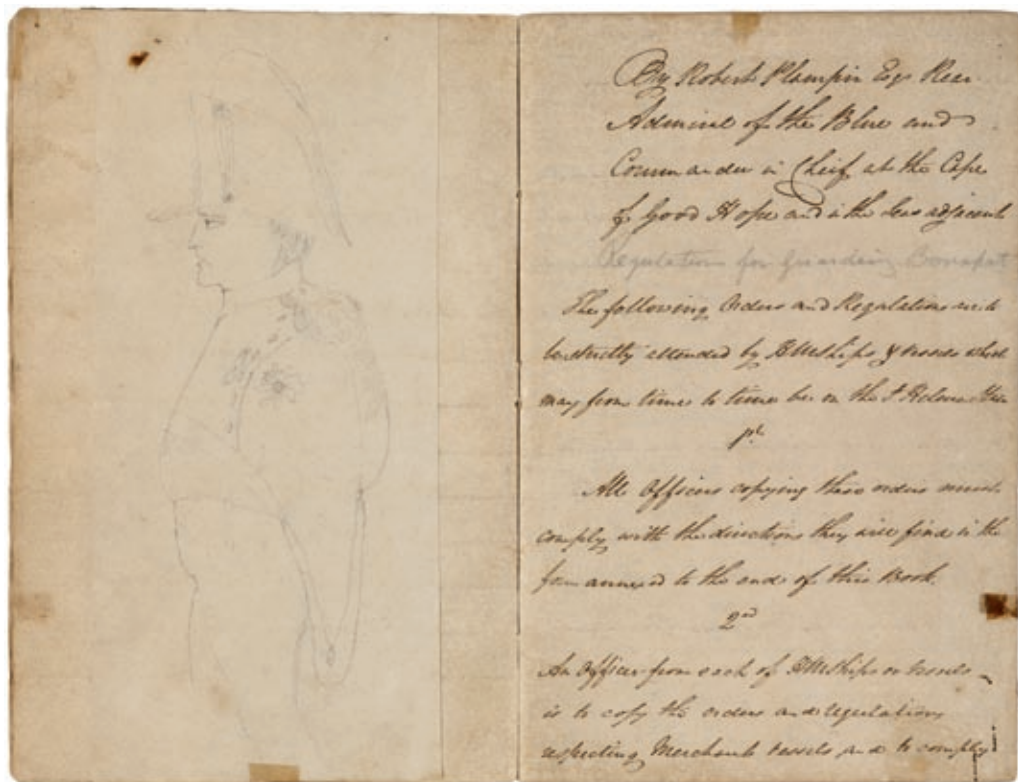 By Robert Plampin Esq. Rear
Admiral of the Blue and
Commander in Cheif at the Cape
of Good Hope and in the Seas adjacent
Regulation for guarding Bonapat
The following Orders and Regulations are to
be strictly attended by HM Ships & Vessels which
may from time to time be on the St Helena
1st
All Officers copying these orders must
comply with the directions they will find in the
form annexed to the ende of this Book.
2nd
An Officer from each of HM Ships or Vessels
is to copy the orders and regulations
respecting Merchant Vessels and to comply